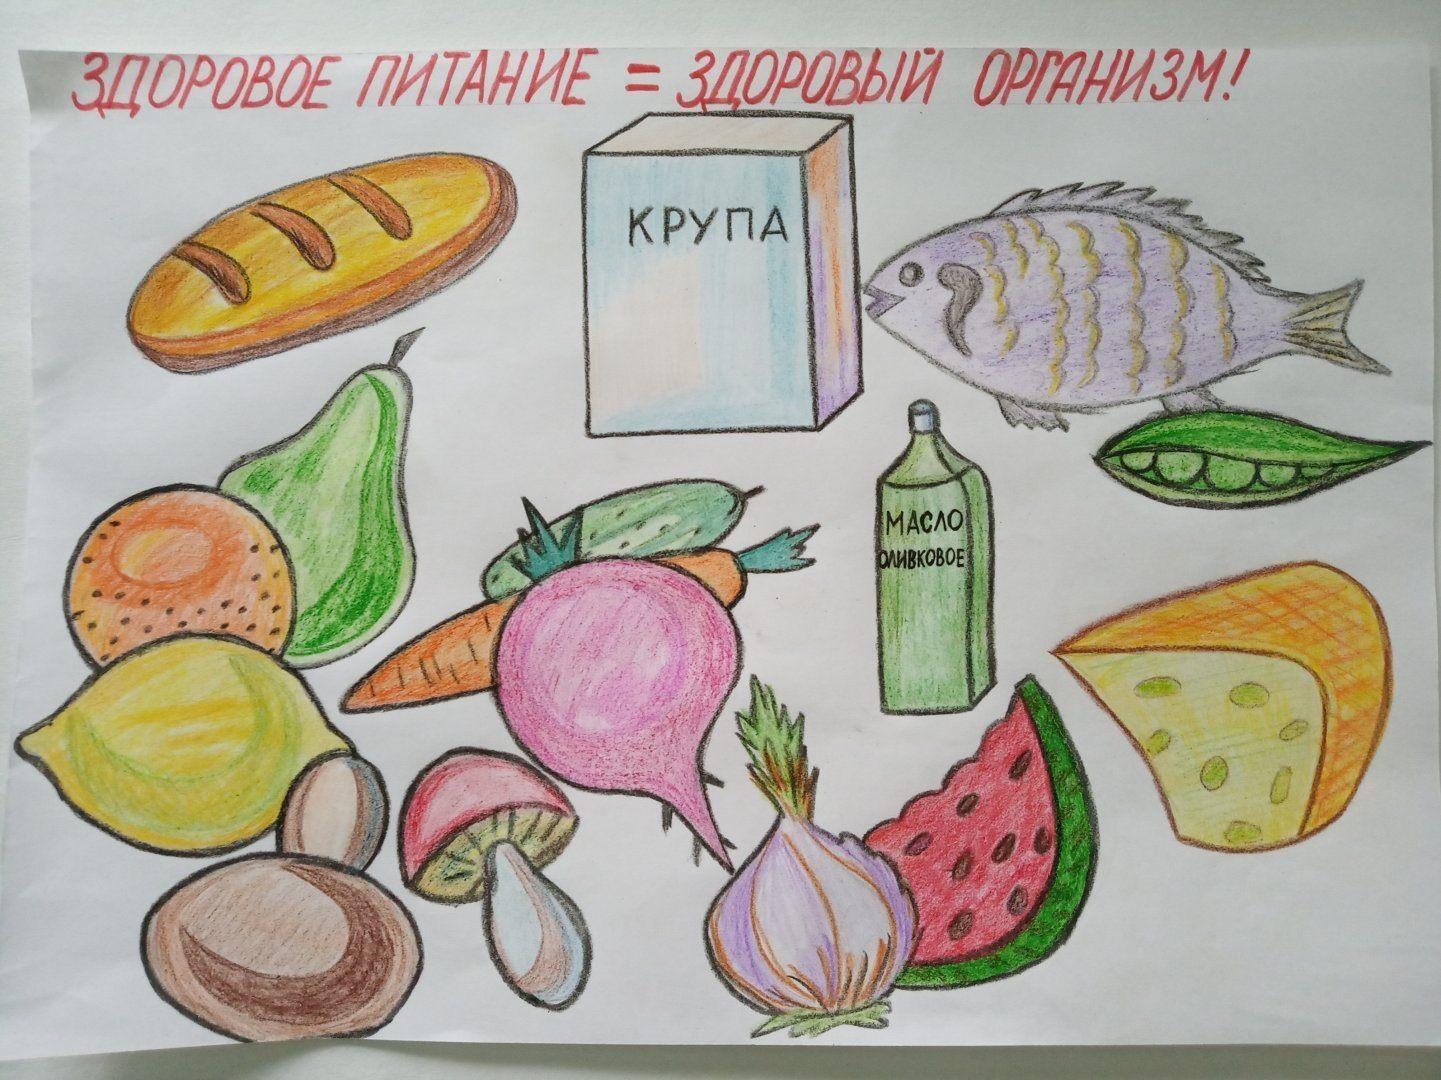 ЗДОРОВОЕ ПИТАНИЕ = ЗДОРОВЫЙ ОРГАНИЗМ!
КРУПА
МАСЛО
ОЛИВКОВОЕ